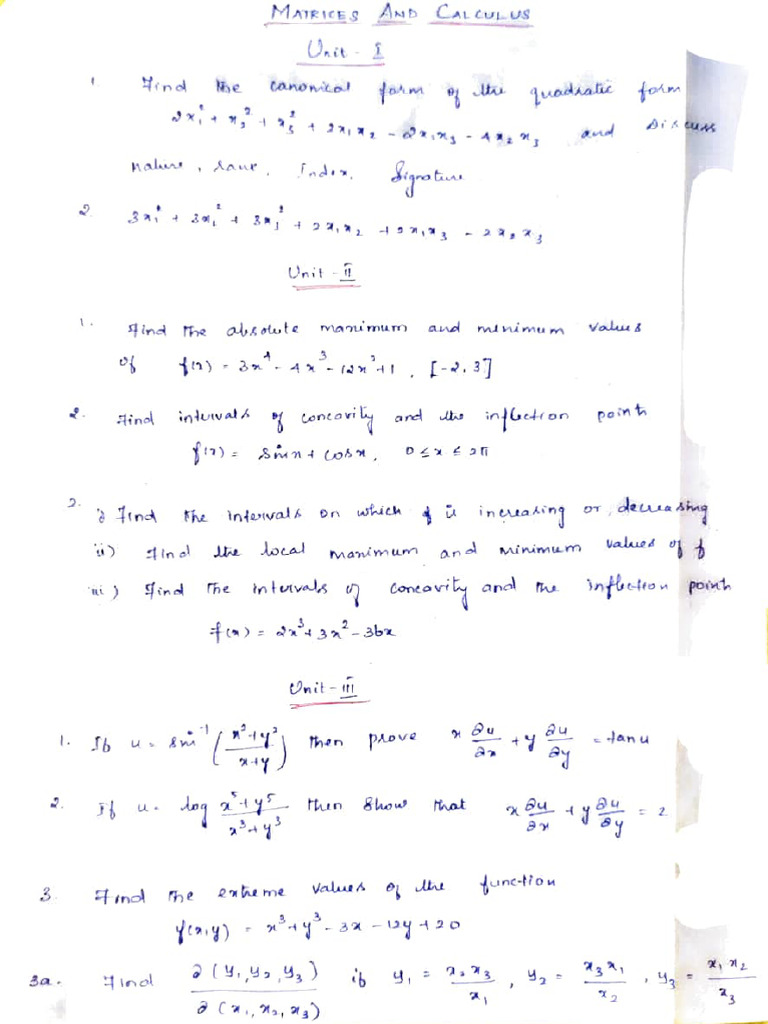 MATRICES AND CALCULUS
Unit - I
1. Find the canonical form of the quadratic form
2x₁² + x₂² + x₃² + 2x₁x₂ - 2x₁x₃ - 4x₂x₃ and Discuss
nature, rank, Index, Signature
2. 3x₁² + 3x₂² + 3x₃² + 2x₁x₂ + 2x₁x₃ - 2x₂x₃
Unit - II
1. Find the absolute maximum and minimum values
of f(x) = 3x⁴ - 4x³ - 12x² + 1, [-2, 3]
2. Find intervals of concavity and the inflection points
f(x) = sinx + cosx, 0 ≤ x ≤ 2π
3. i) Find the intervals on which f is increasing or, decreasing
ii) Find the local maximum and minimum values of f
iii) Find the intervals of concavity and the inflection points
f(x) = 2x³ + 3x² - 36x
Unit - III
1. If u = sin⁻¹ ((x² + y²)/(x + y)) then prove x ∂u/∂x + y ∂u/∂y = tan u
2. If u = log (x⁵ + y⁵)/(x³ + y³) then show that x ∂u/∂x + y ∂u/∂y = 2
3. Find the extreme values of the function
f(x,y) = x³ + y³ - 3x - 12y + 20
3a. Find ∂(y₁, y₂, y₃)/∂(x₁, x₂, x₃) if y₁ = x₂x₃/x₁, y₂ = x₃x₁/x₂, y₃ = x₁x₂/x₃